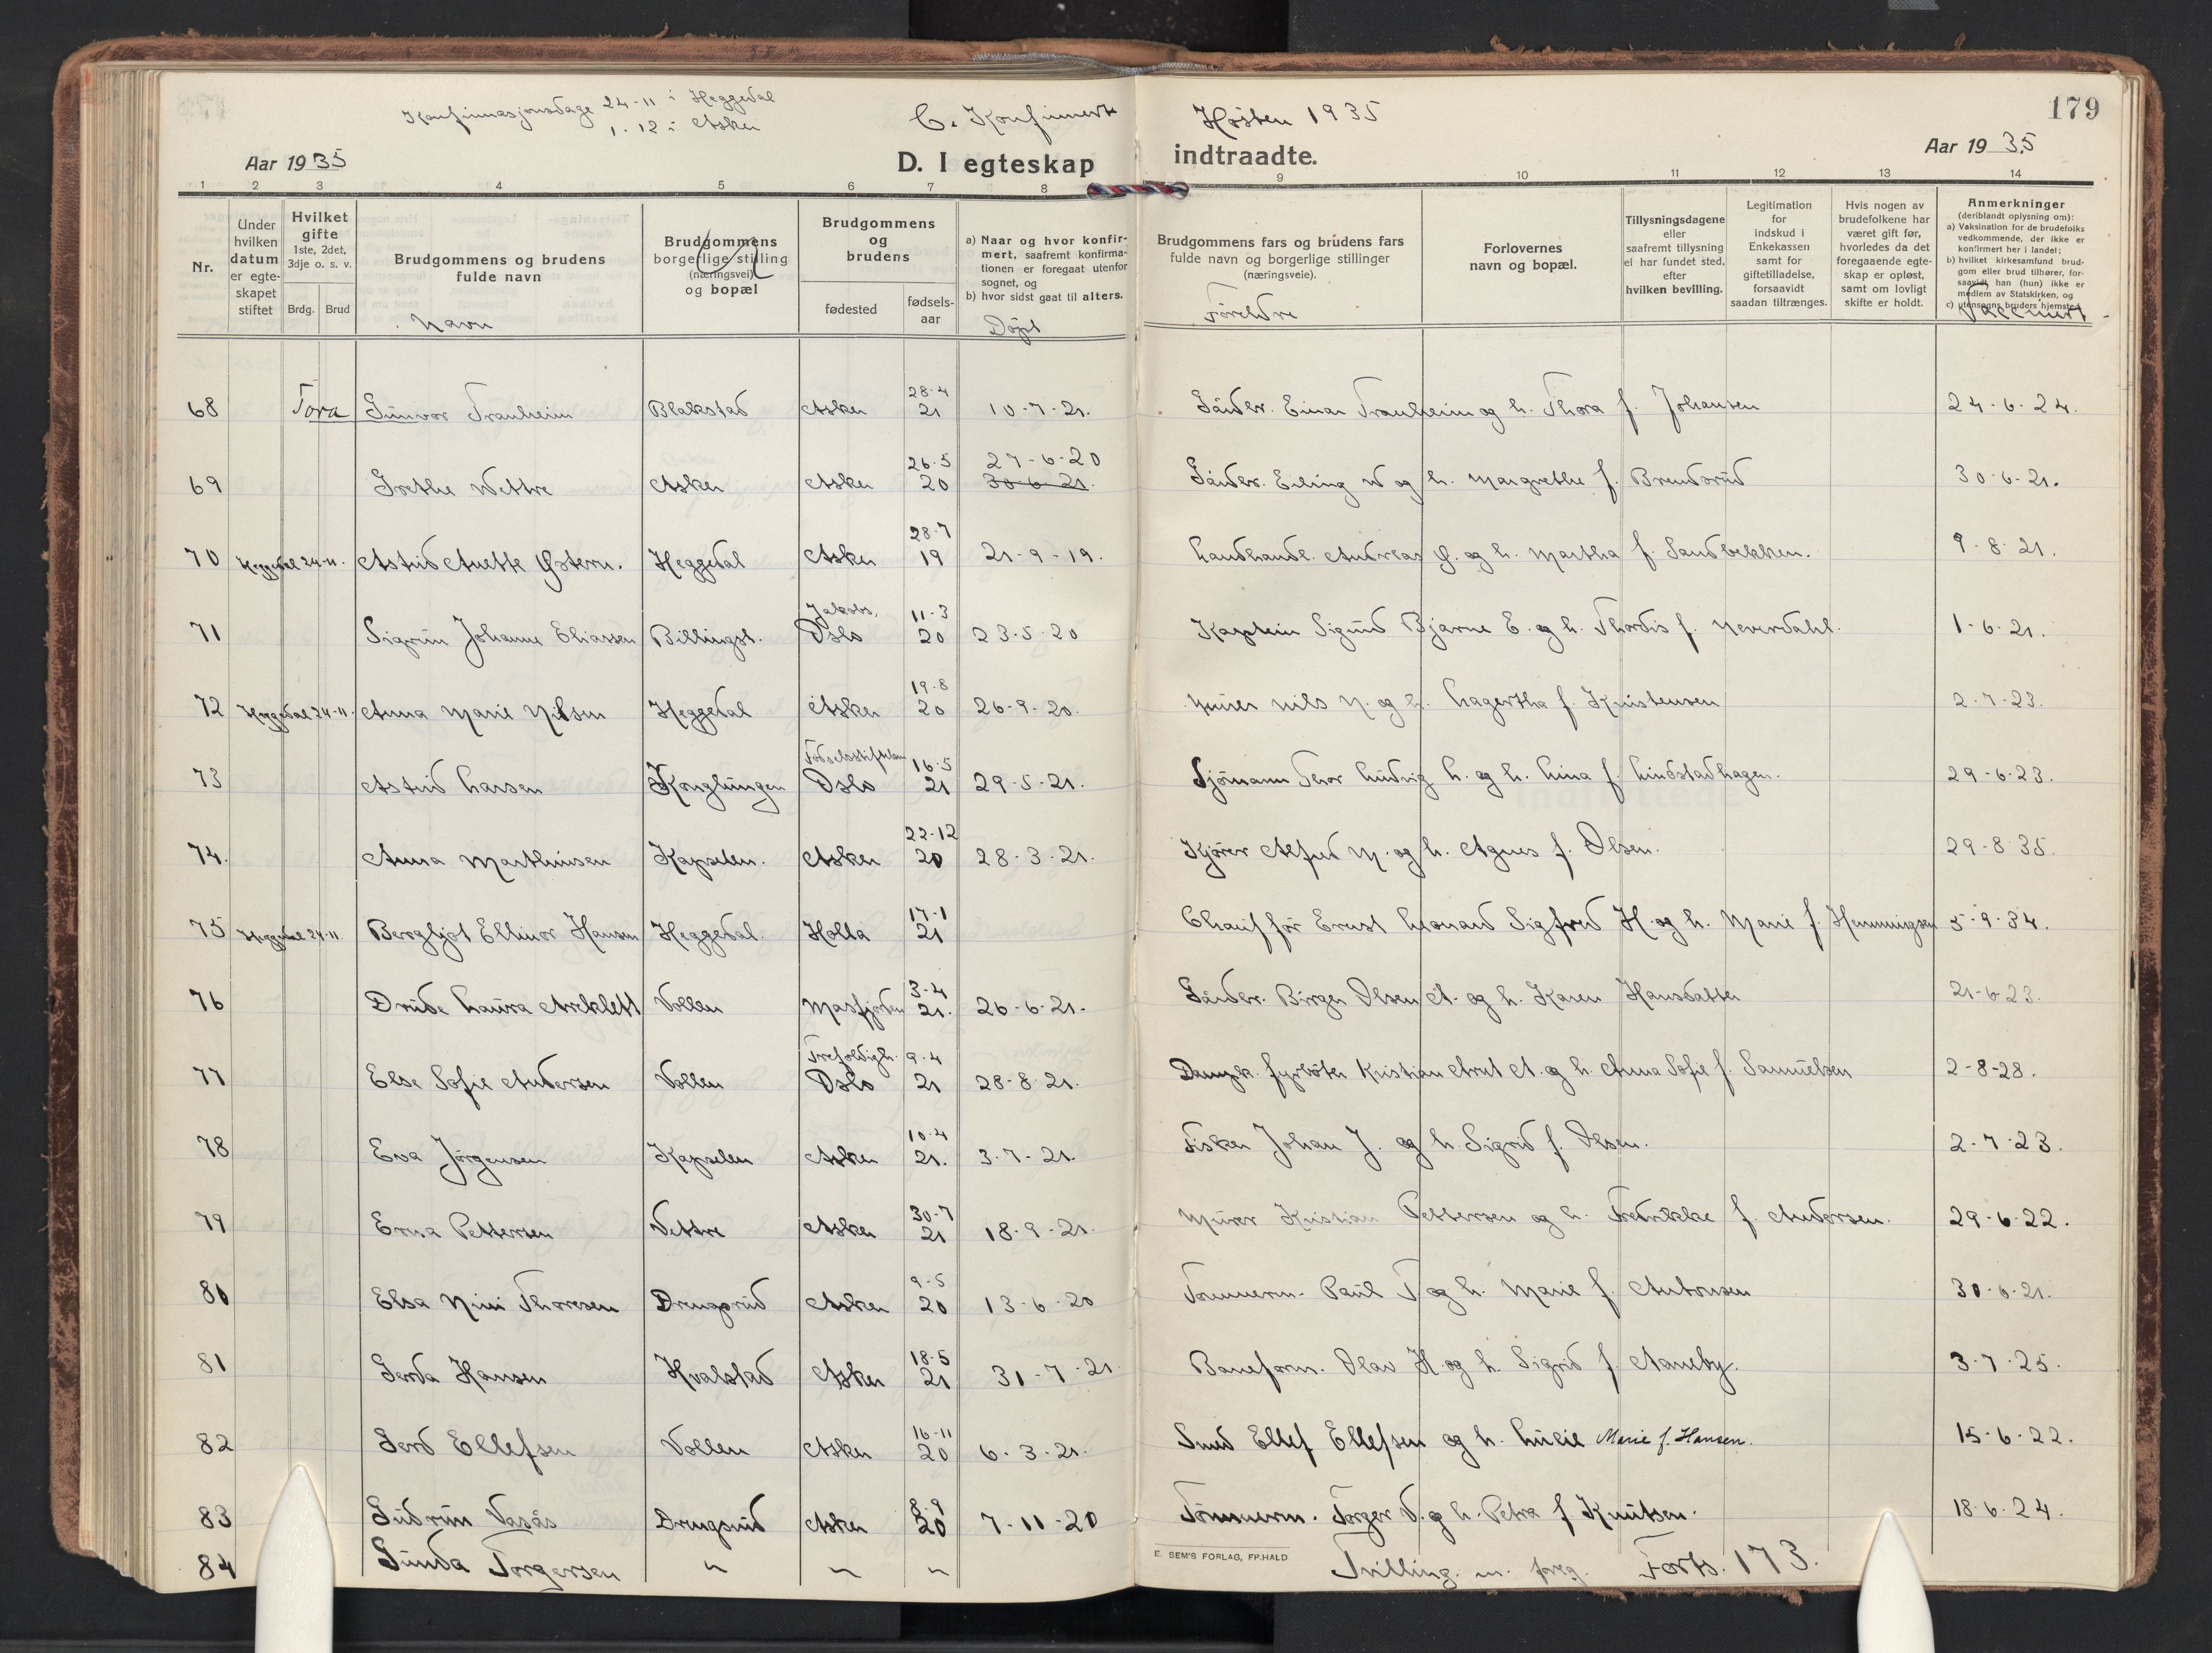 Konfirmasjonsdage 24-11 i Heggedal
1.12 i Asker
C. Konfirmerte Høsten 1935
179
Aar 1935
D. I egteskap indtraadte.
Aar 1935
1 2 3 4 5 6 7 8 9 10 11 12 13 14
Nr.
Under hvilken datum er egteskapet stiftet
Hvilket gifte 1ste, 2det, 3dje o. s. v.
Brdg. Brud
Brudgommens og brudens fulde navn
Navn
Brudgommens borgerlige stilling (næringsvei) og bopæl
Brudgommens og brudens
fødested
fødselsaar
a) Naar og hvor konfirmert, saafremt konfirmationen er foregaat utenfor sognet, og
b) hvor sidst gaat til alters.
Døpt
Brudgommens fars og brudens fars fulde navn og borgerlige stillinger (næringsveie).
Foreldre
Forlovernes navn og bopæl.
Tillysningsdagene eller saafremt tillysning ei har fundet sted, efter hvilken bevilling.
Legitimation for indskud i Enkekassen samt for giftetilladelse, forsaavidt saadan tiltrænges.
Hvis nogen av brudefolkene har været gift før, hvorledes da det foregaaende egteskap er opløst, samt om lovligt skifte er holdt.
Anmerkninger (deriblandt oplysning om):
a) Vaksination for de brudefolks vedkommende, der ikke er konfirmert her i landet;
b) hvilket kirkesamfund brudgom eller brud tilhører, forsaavidt han (hun) ikke er medlem av Statskirken, og
c) utensogns bruders hjemsted.
68 Tora Gunvor Tranheim Blakstad Asker 28-4 21 10-7-21. Gårdbr. Einar Tranheim og h. Thora f. Johansen 24-6-24.
69 Grethe Wettre Asker Asker 26-5 20 27-6-20 30-6-21. Gårdbr. Erling W og h. Margrethe f. Brendsrud 30-6-21.
70 Heggedal 24-11. Astrid Anette Østern. Heggedal Asker 28-7 19 21-9-19. Landhandl. Andreas Ø. og h. Martha f. Sandbekken. 9-8-21.
71 Sigrun Johanne Eliassen Billingst. Jakobs, Oslo 11-3 20 23-5-20 Kaptein Sigurd Bjarne E. og h. Thordis f. Neverdahl. 1-6-21.
72 Heggedal 24-11. Anna Marie Nilsen Heggedal Asker 19-8 20 26-9-20. Murer Nils N. og h. Hagertha f. Kristensen 2-7-23.
73 Astrid Larsen Konglungen Fødselsstiftelsen Oslo 16-5 21 29-5-21. Sjømann Thor Ludvig L. og h. Lina f. Lindstadhagen. 29-6-23.
74. Anna Marthinsen Kapselen. Asker 22-12 20 28-3-21. Kjører Alfred M. og h. Agnes f. Olsen. 29-8-35.
75 Heggedal 24-11 Bergljot Ellinor Hansen Heggedal. Holla 17-1 21 Chauffør Ernst Leonard Sigfred H. og h. Marie f. Henningsen 5-9-34.
76 Drude Laura Areklett Vollen Masfjorden 3-4 21. 26-6-21. Gårdbr. Birger Olsen A. og h. Karen Hansdatter 21-6-23.
77 Else Sofie Andersen Vollen Trefoldigh. Oslo 9-4 21 28-8-21. Dampsk. fyrbøter Kristian Arnt A. og h. Anna Sofie f. Samuelsen 2-8-28.
78 Eva Jörgensen Kapselen Asker 10-4 21. 3-7-21. Fisker Johan J. og h. Sigrid f. Olsen. 2-7-23.
79 Erna Pettersen Vettre Asker 30-7 21 18-9-21. Murer Kristian Pettersen og h. Fredrikke f. Andersen. 29-6-22.
80 Elsa Nini Thoresen Drengsrud Asker 9-5 20 13-6-20 Tømmerm. Paul T og h. Marie f. Antonsen 30-6-21.
81 Gerda Hansen Hvalstad Asker 18-5 21 31-7-21. Baneform. Olav H. og h. Sigrid f. Aaneby. 3-7-25.
82 Gerd Ellefsen Vollen Asker 16-11 20 6-3-21. Smed Ellef Ellefsen og h. Lucie Marie f. Hansen. 15-6-22.
83 Gudrun Vasås Drengsrud Asker 8-9 20 7-11-20 Tømmerm. Torger V. og h. Petra f. Knutsen. 18-6-24.
84 Gunda Torgersen " " " Tvilling m. foreg. Forts. 173.
E. SEM'S FORLAG, FR.HALD